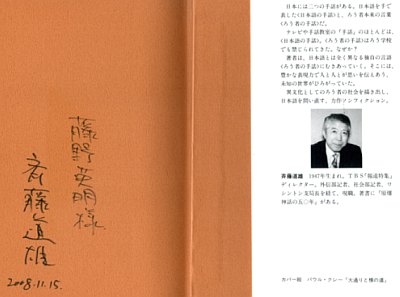 藤野英明様
斉藤道雄
2008.11.15.
日本には二つの手話がある。日本語を手で
表した〈日本語の手話〉と、ろう者本来の言葉
〈ろう者の手話〉だ。
テレビや手話教室の「手話」のほとんどは、
〈日本語の手話〉。〈ろう者の手話〉はろう学校
でも禁じられてきた。なぜか?
著者は、日本語とは全く異なる独自の言語
〈ろう者の手話〉にむきあっていく。そこには、
豊かな表現力で人と人とが思いを伝えあう、
未知の世界がひろがっていた。
異文化としてのろう者の社会を描き出し、
日本語を問い直す、力作ノンフィクション。
斉藤道雄 1947年生まれ。TBS「報道特集」
ディレクター。外信部記者、社会部記者、ワ
シントン支局長を経て、現職。著書に『原爆
神話の五〇年』がある。
カバー絵 パウル・クレー「大通りと横の道」